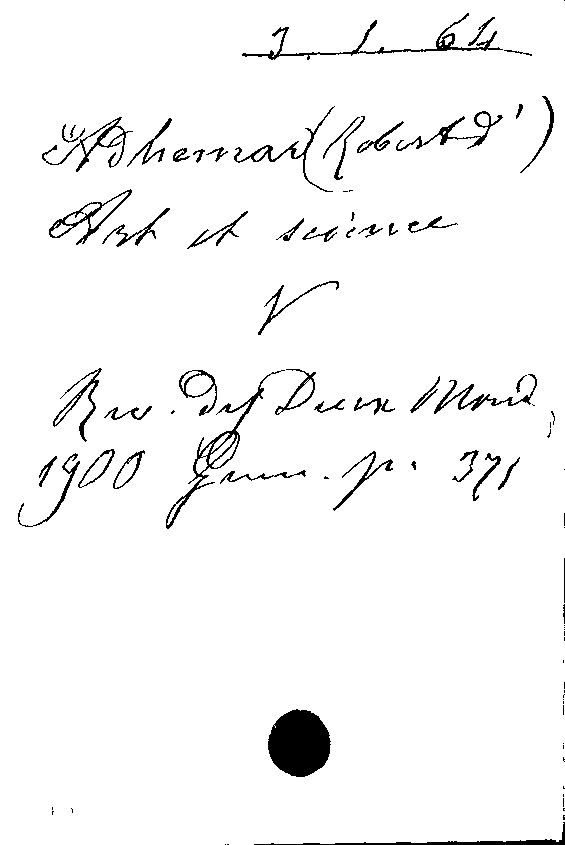 3. 1. 64
Adhemar (Robert d')
Art et science
V
Rev. des Deux Mond,
1900 p. 371